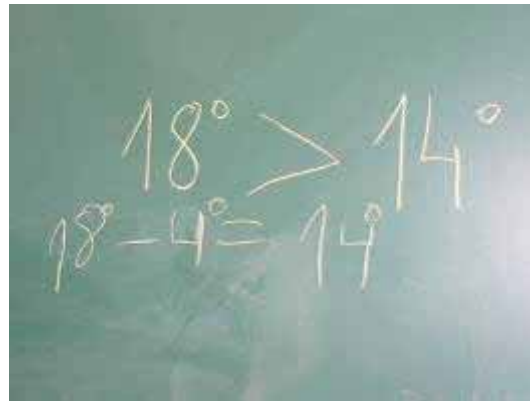 18° > 14°
18° - 4° = 14°